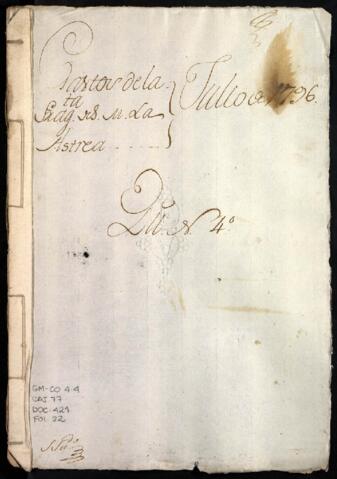 Gastos de la
Frag.ta d S. M. La
Astrea
Julio de 1796.
N. 4º
GM-CO 4.4
CAJ 77
DOC-421
FOL 22